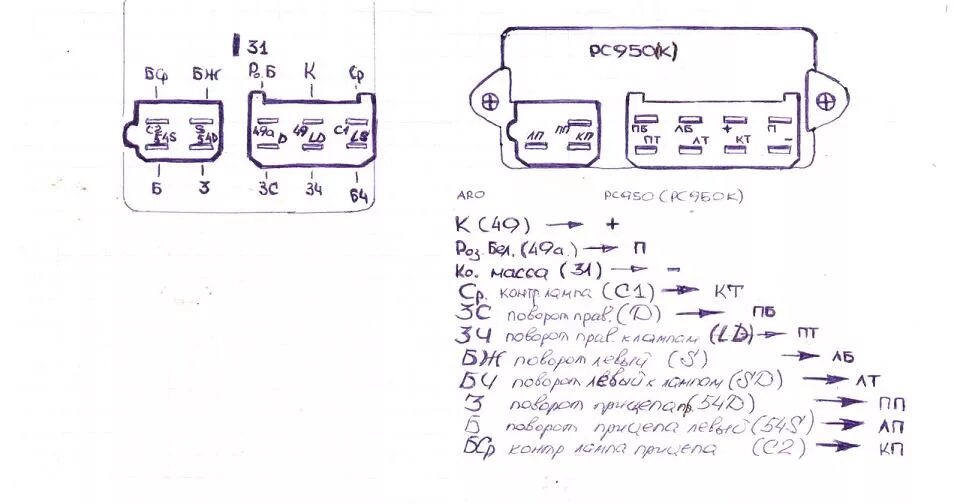 31
БЖ БСр Роз. Б К Ср
С2 S 49а 49 С1
54S 54D D LD LS
Б З ЗС ЗЧ БЧ
РС950(К)
ЛП ПП КП
ПБ ЛБ + П
ПТ ЛТ КТ -
ARO РС950 (РС950К)
К (49) → +
Роз. Бел. (49а.) → П
Ко. масса (31) → -
Ср. контр лампа (С1) → КТ
ЗС поворот прав. (D) → ПБ
ЗЧ поворот прав. к лампам (LD) → ПТ
БЖ поворот левый (S) → ЛБ
БЧ поворот левый к лампам (SD) → ЛТ
З поворот прицепа пр. (54D) → ПП
Б поворот прицепа левый (54S) → ЛП
БСр контр лампа прицепа (С2) → КП